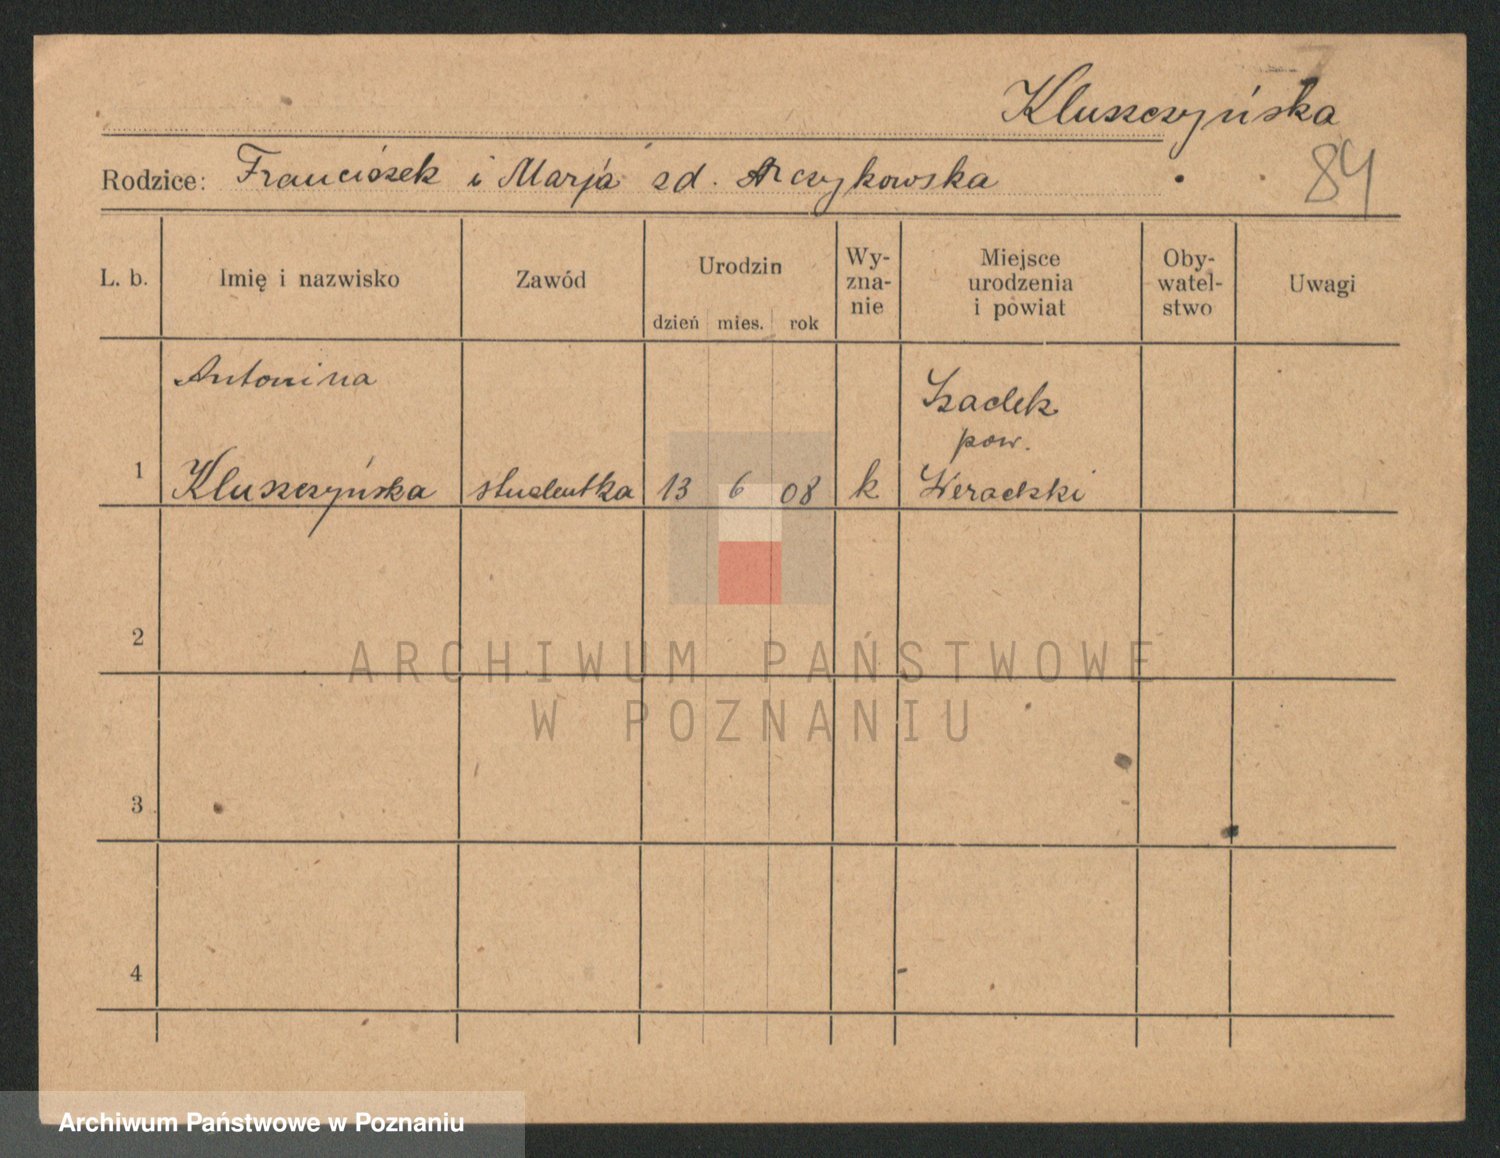 Kluszczyńska
Rodzice: Franciszek i Marja zd. Arczykowska
84
L. b.
Imię i nazwisko
Zawód
Urodzin
dzień mies. rok
Wy-
zna-
nie
Miejsce
urodzenia
i powiat
Oby-
watel-
stwo
Uwagi
Antonina
1 Kluszczyńska studentka 13 6 08 k
Szadek
pow.
Sieradzki
2
3
4
ARCHIWUM PAŃSTWOWE
W POZNANIU
Archiwum Państwowe w Poznaniu